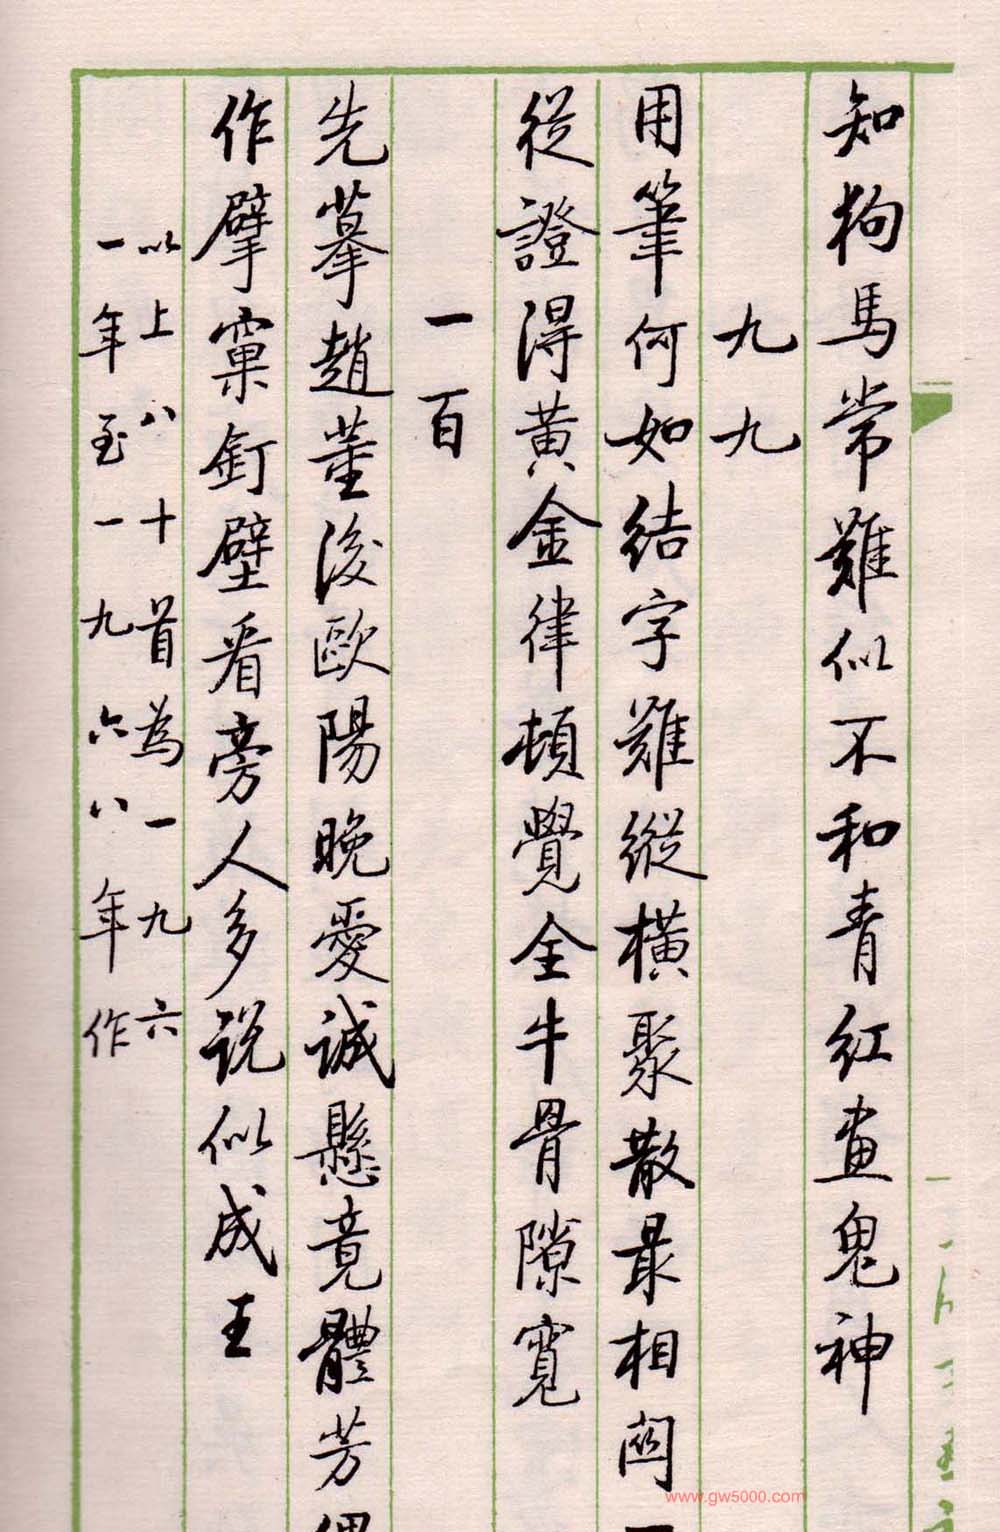 知狗馬常難似不和青紅畫鬼神
九九
用筆何如結字難縱橫聚散最相関
從證得黄金律頓覺全牛骨隙寬
一百
先摹趙董後歐陽晚愛誠懸竟體芳
作擘窠釘壁看旁人多說似成王
以上八十首為一九六
一年至一九六八年作
www.gw5000.com